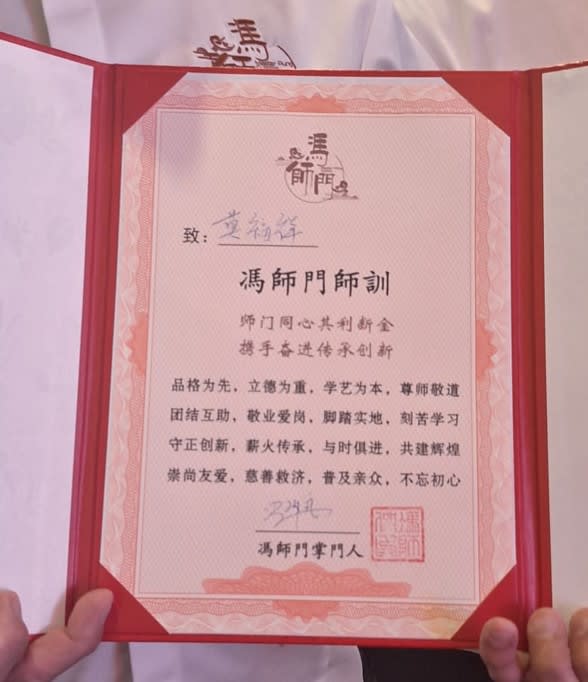 馮
馮
師門
致：莫
馮師門師訓
师门同心其利断金
携手奋进传承创新
品格为先，立德为重，学艺为本，尊师敬道
团结互助，敬业爱岗，脚踏实地，刻苦学习
守正创新，薪火传承，与时俱进，共建辉煌
崇尚友爱，慈善救济，普及亲众，不忘初心
馮師門掌門人